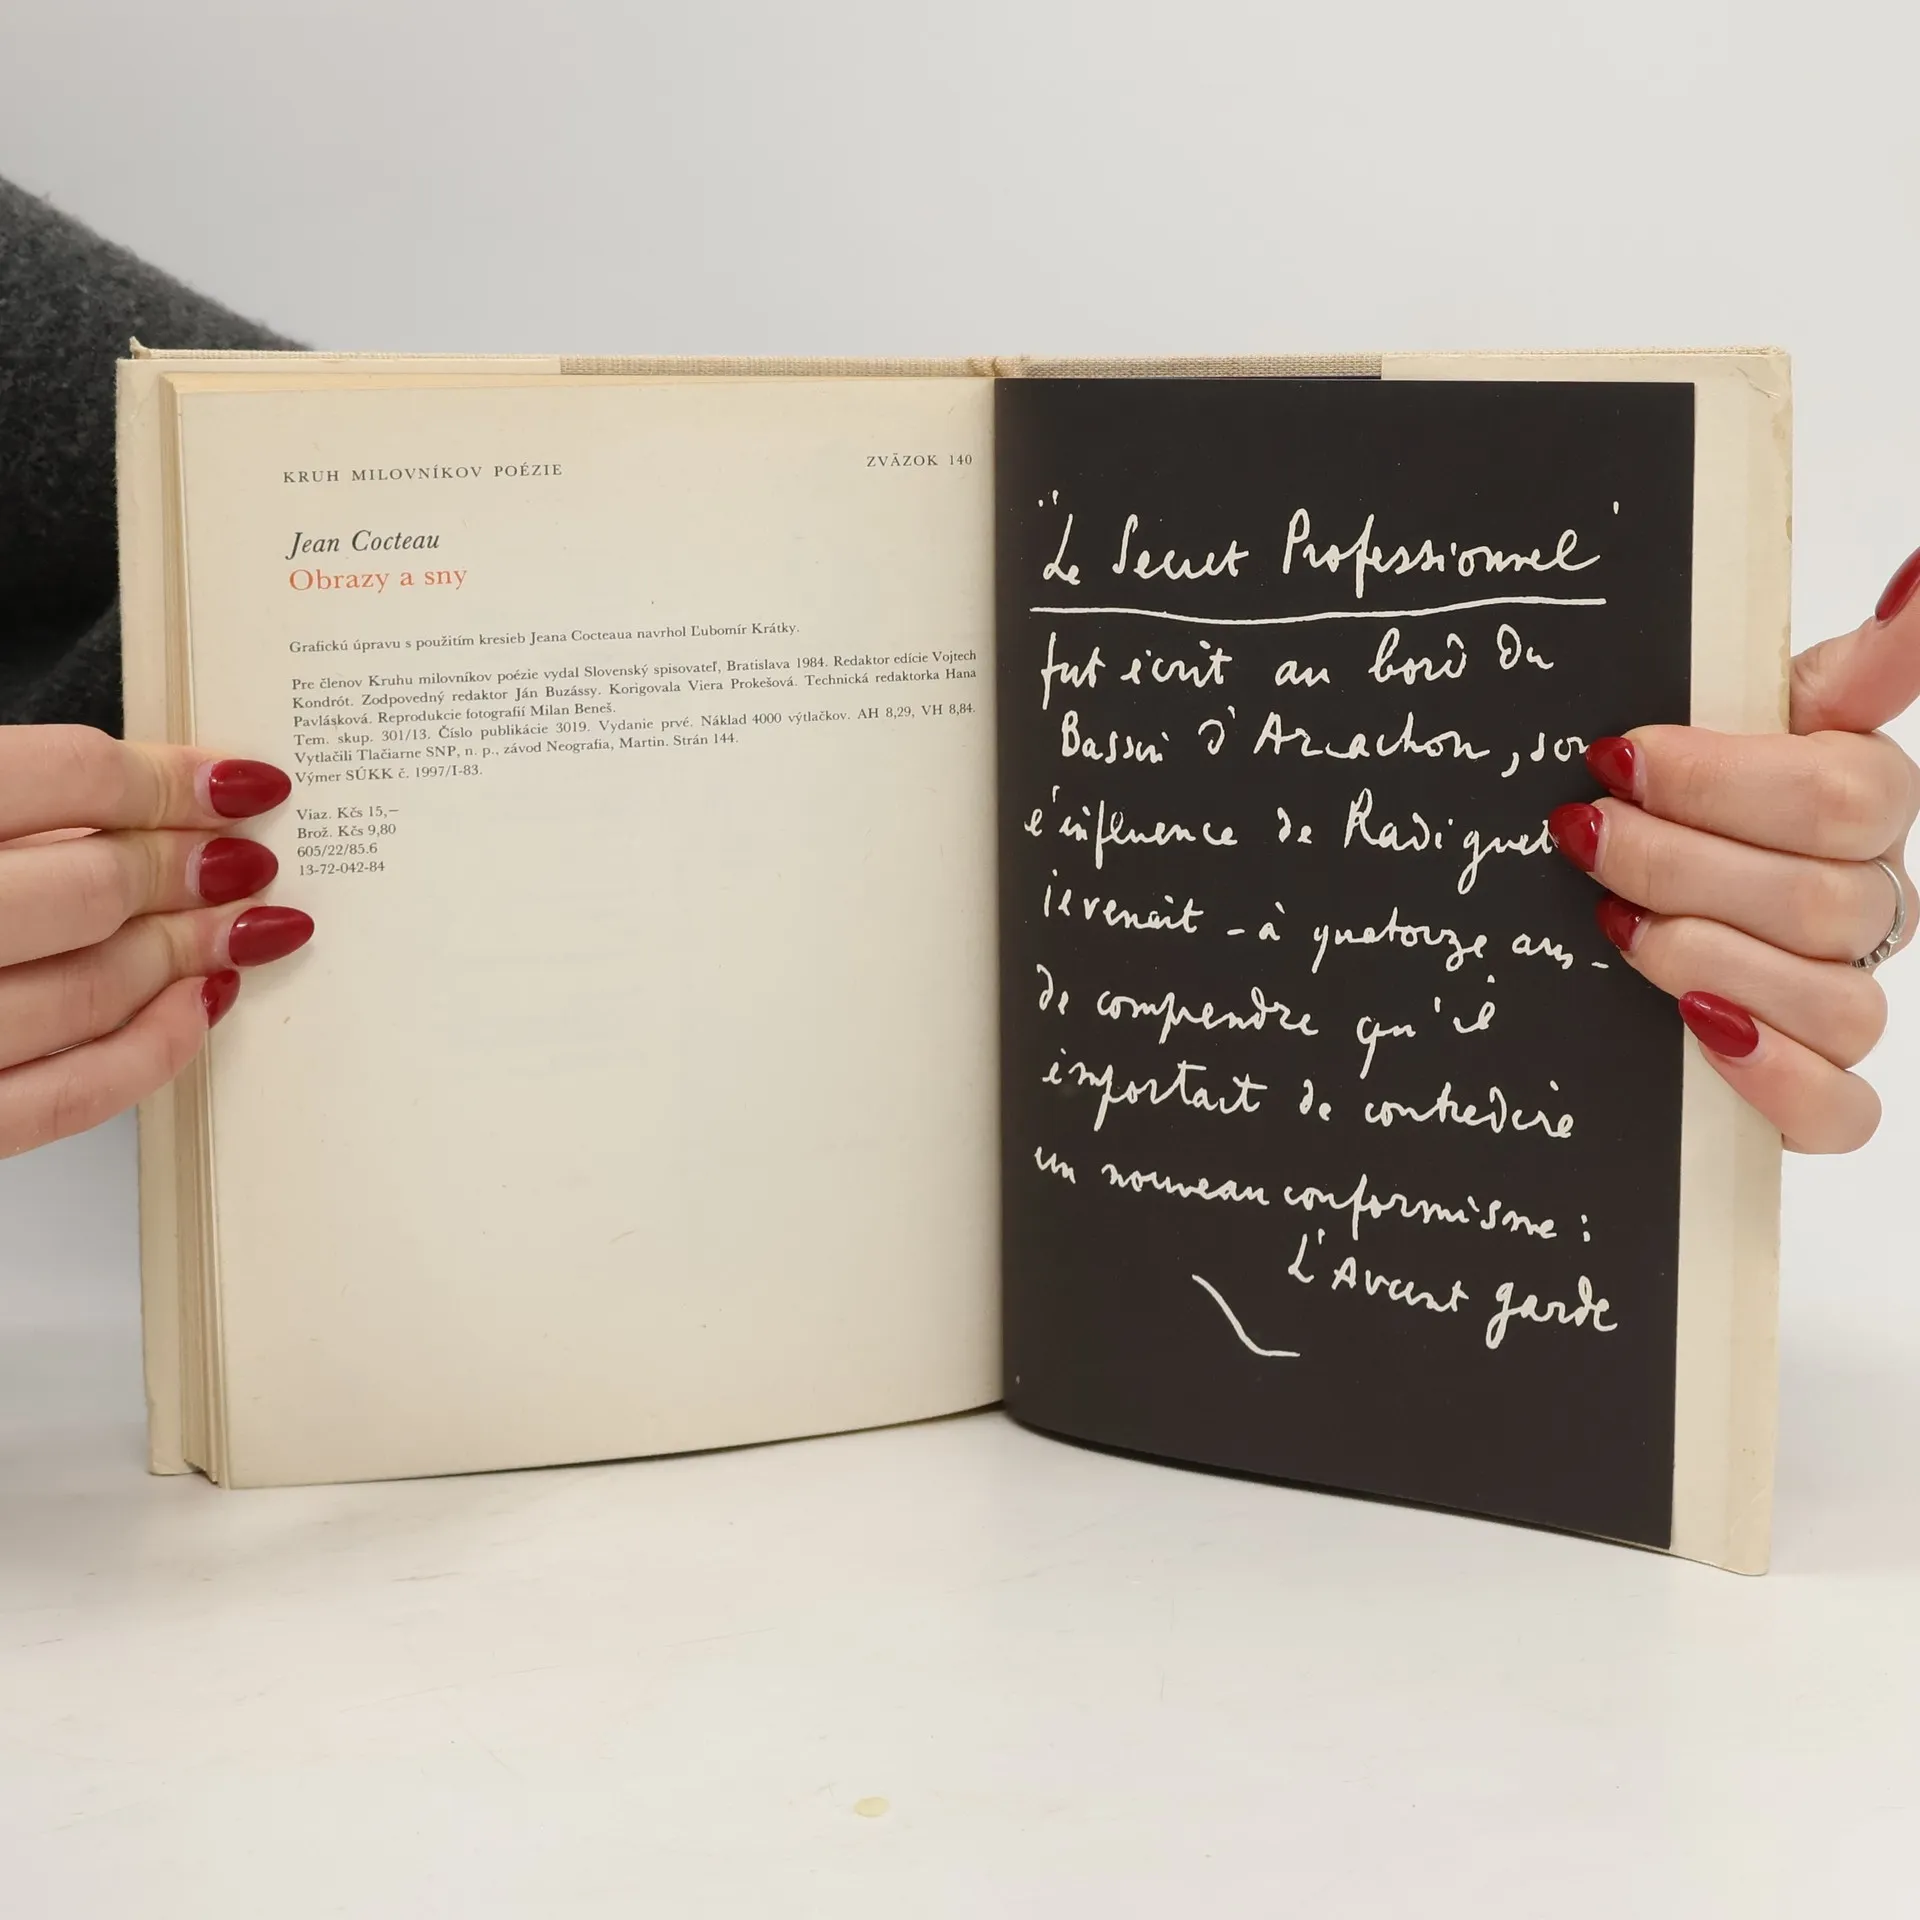 KRUH MILOVNÍKOV POÉZIE
ZVÄZOK 140
Jean Cocteau
Obrazy a sny
Grafickú úpravu s použitím kresieb Jeana Cocteaua navrhol Ľubomír Krátky.
Pre členov Kruhu milovníkov poézie vydal Slovenský spisovateľ, Bratislava 1984. Redaktor edície Vojtech
Kondrót. Zodpovedný redaktor Ján Buzássy. Korigovala Viera Prokešová. Technická redaktorka Hana
Pavlásková. Reprodukcie fotografií Milan Beneš.
Tem. skup. 301/13. Číslo publikácie 3019. Vydanie prvé. Náklad 4000 výtlačkov. AH 8,29, VH 8,84.
Vytlačili Tlačiarne SNP, n. p., závod Neografia, Martin. Strán 144.
Výmer SÚKK č. 1997/I-83.
Viaz. Kčs 15,—
Brož. Kčs 9,80
605/22/85.6
13-72-042-84
"Le Secret Professionnel"
fut écrit au bord du
Bassin d'Arcachon,
l'influence de Radiguet
venait - à quatorze ans -
de comprendre qu'il
importait de contredire
un nouveau conformisme :
L'Avant garde